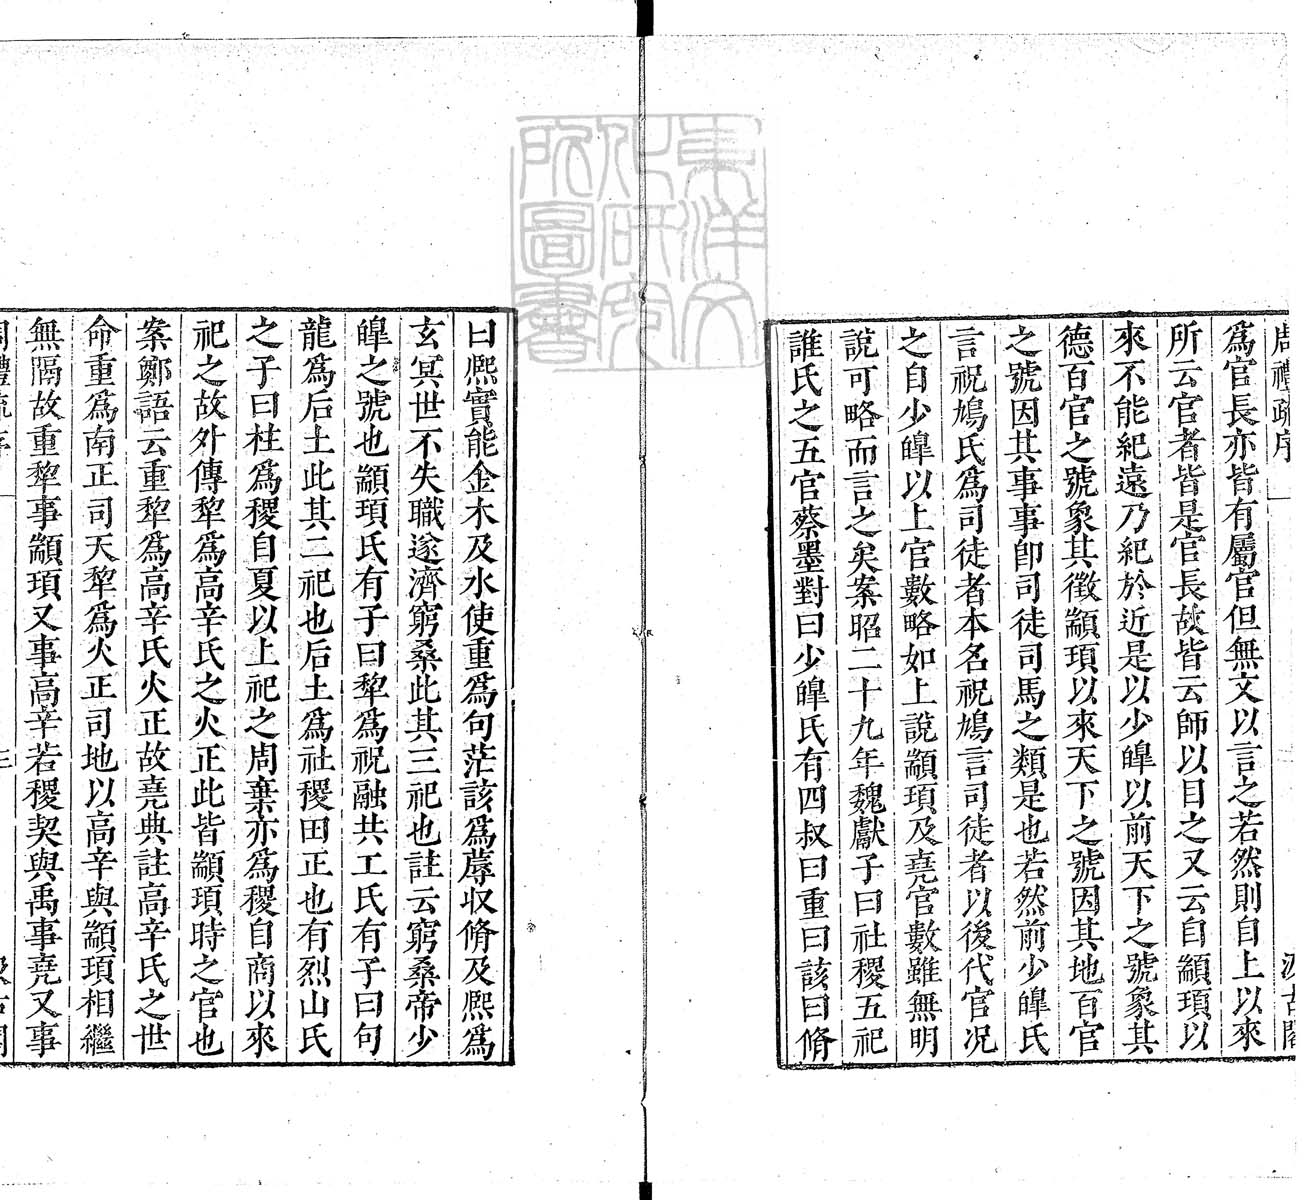 周禮疏序 一 汲古閣
爲官長亦皆有屬官但無文以言之若然則自上以來
所云官者皆是官長故皆云師以目之又云自顓頊以
來不能紀遠乃紀於近是以少皞以前天下之號象其
德百官之號象其徵顓頊以來天下之號因其地百官
之號因其事事卽司徒司馬之類是也若然前少皞氏
言祝鳩氏爲司徒者本名祝鳩言司徒者以後代官况
之自少皞以上官數略如上說顓頊及堯官數雖無明
說可略而言之矣案昭二十九年魏獻子曰社稷五祀
誰氏之五官蔡墨對曰少皞氏有四叔曰重曰該曰脩
曰熈實能金木及水使重爲句茫該爲蓐収脩及熈爲
玄冥世不失職遂濟窮桑此其三祀也註云窮桑帝少
皞之號也顓頊氏有子曰犂爲祝融共工氏有子曰句
龍爲后土此其二祀也后土爲社稷田正也有烈山氏
之子曰柱爲稷自夏以上祀之周棄亦爲稷自商以來
祀之故外傳犂爲高辛氏之火正此皆顓頊時之官也
案鄭語云重犂爲高辛氏火正故堯典註高辛氏之世
命重爲南正司天犂爲火正司地以高辛與顓頊相繼
無隔故重犂事顓頊又事高辛若稷契與禹事堯又事
東洋文化研究所圖書